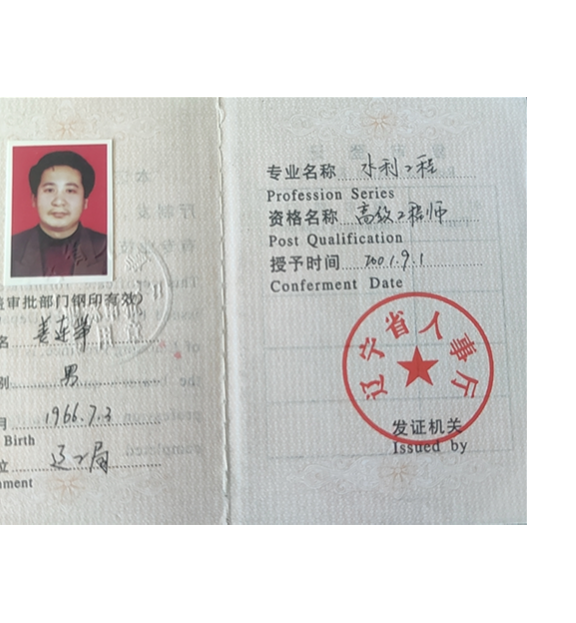 盖审批部门钢印有效)
名 姜连举
别 男
月 1966.7.3
Birth
位 辽工局
ment
专业名称 水利工程
Profession Series
资格名称 高级工程师
Post Qualification
授予时间 2001.9.1
Conferment Date
辽宁省人事厅
发证机关
Issued by